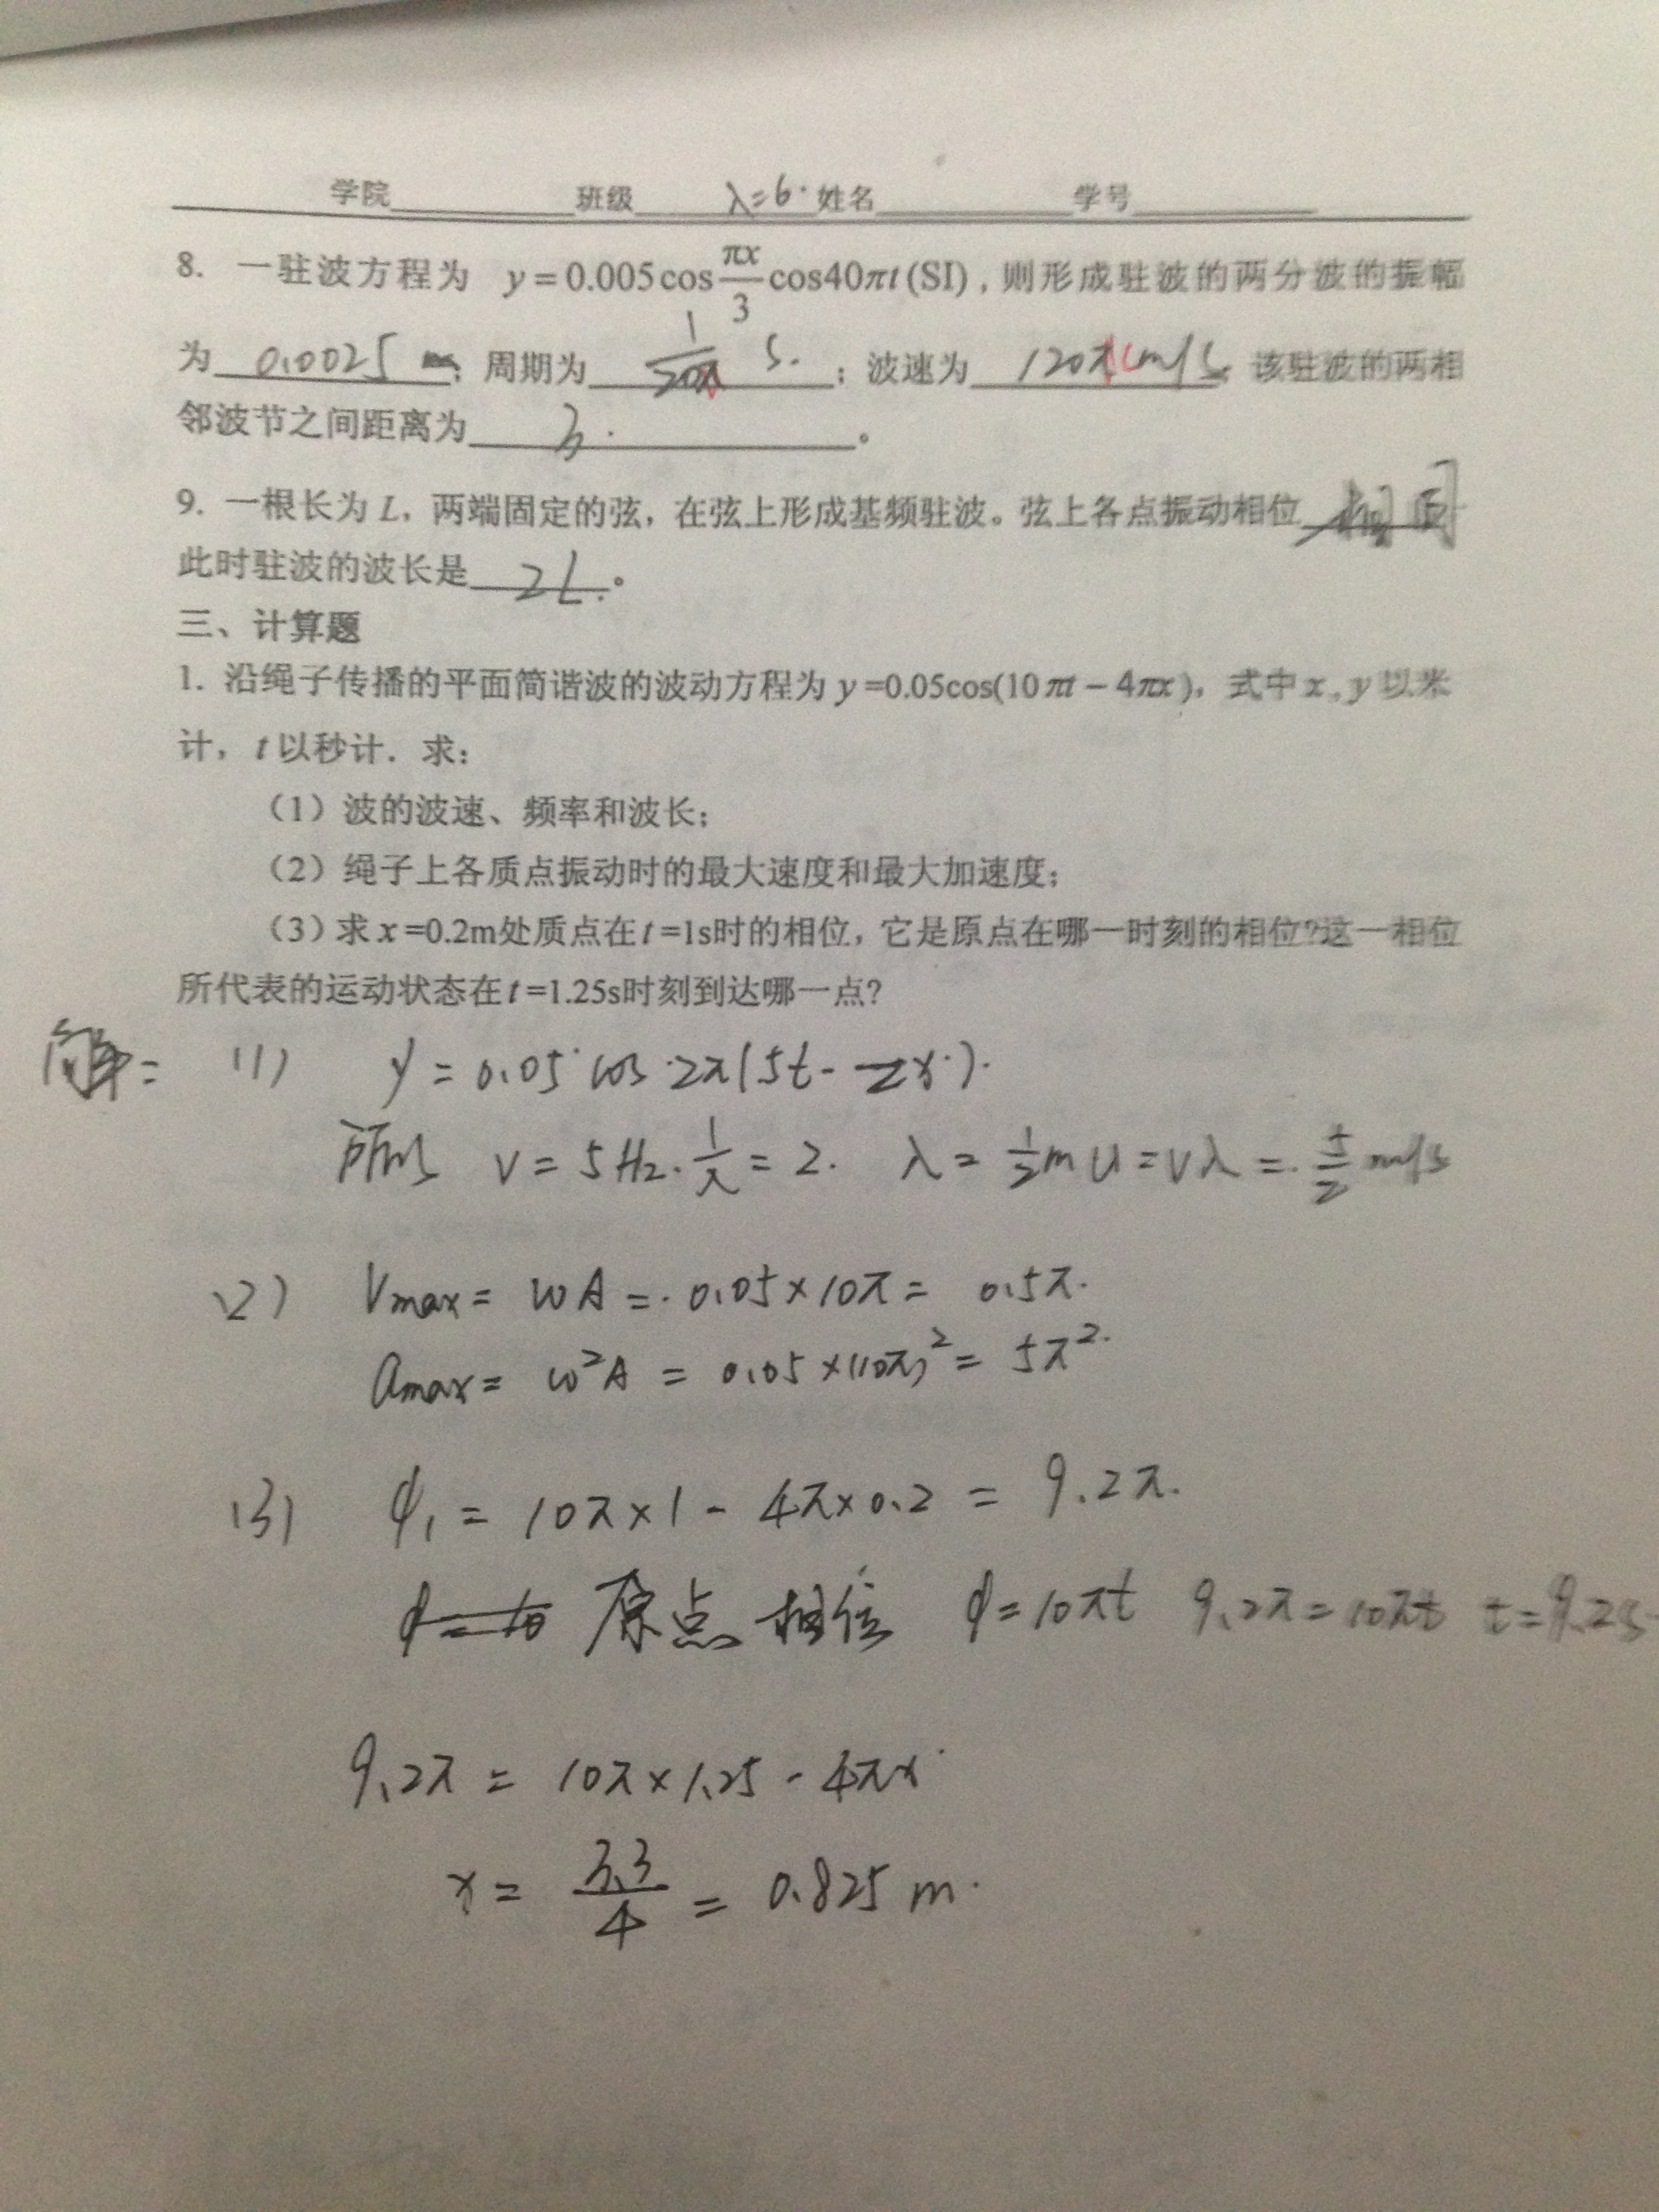 学院 班级 λ=6. 姓名 学号
8. 一驻波方程为 y=0.005cos(πx/3)cos40πt(SI)，则形成驻波的两分波的振幅
为 0.0025 ；周期为 1/20π s. ；波速为 120π m/s 该驻波的两相
邻波节之间距离为 3. 。
9. 一根长为 L，两端固定的弦，在弦上形成基频驻波。弦上各点振动相位 相同
此时驻波的波长是 2L. 。
三、计算题
1. 沿绳子传播的平面简谐波的波动方程为 y=0.05cos(10πt－4πx)，式中 x，y 以米
计，t 以秒计．求：
（1）波的波速、频率和波长；
（2）绳子上各质点振动时的最大速度和最大加速度；
（3）求 x=0.2m处质点在 t=1s时的相位，它是原点在哪一时刻的相位?这一相位
所代表的运动状态在 t=1.25s时刻到达哪一点?
解: (1) y = 0.05 cos 2π(5t - 2x).
所以 ν = 5Hz. 1/λ = 2. λ = 1/2 m u = νλ = 5/2 m/s
(2) Vmax = ωA = 0.05×10π = 0.5π.
amax = ω²A = 0.05×(10π)² = 5π².
(3) φ₁ = 10π×1 - 4π×0.2 = 9.2π.
原点相位 φ=10πt 9.2π=10πt t=9.2s
9.2π = 10π×1.25 - 4πx
x = 3.3/4 = 0.825 m.